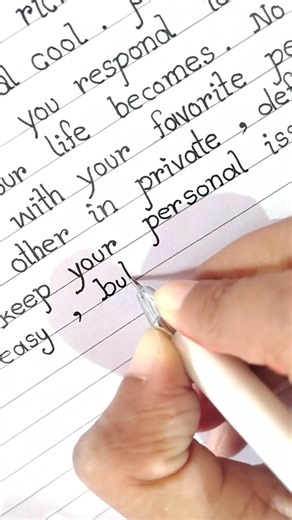 al cool.
you respond
life becomes. No
with your favorite pe
other in private, def
keep your personal iss
easy, but